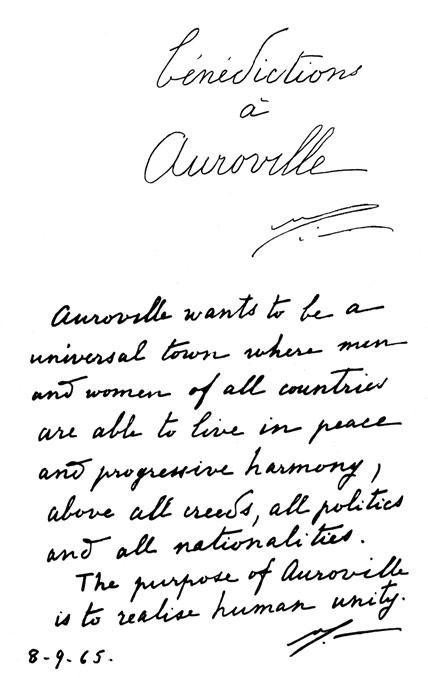 bénédictions
à
Auroville
Auroville wants to be a
universal town where men
and women of all countries
are able to live in peace
and progressive harmony,
above all creeds, all politics
and all nationalities.
The purpose of Auroville
is to realise human unity.
8-9-65.